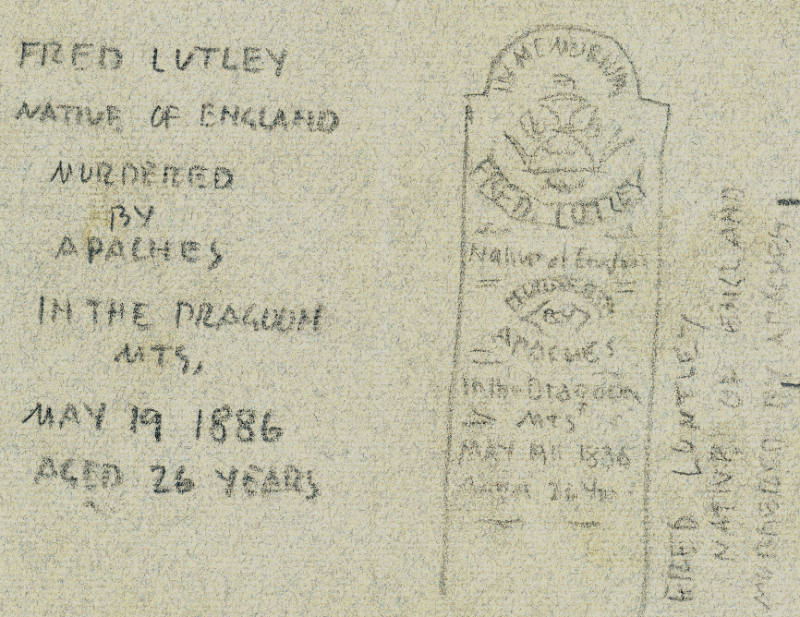 FRED LUTLEY
NATIVE OF ENGLAND
MURDERED
BY
APACHES
IN THE DRAGOON
MTS,
MAY 19 1886
AGED 26 YEARS
IN MEMORIUM
FRED. LUTLEY
Native of England
MURDERED
BY
APACHES
In th- Dragoon
MTS
MAY 19 1836
26
FRED LUNTLEY
NATIVE OF ENGLAND
MURDERED BY APACHES